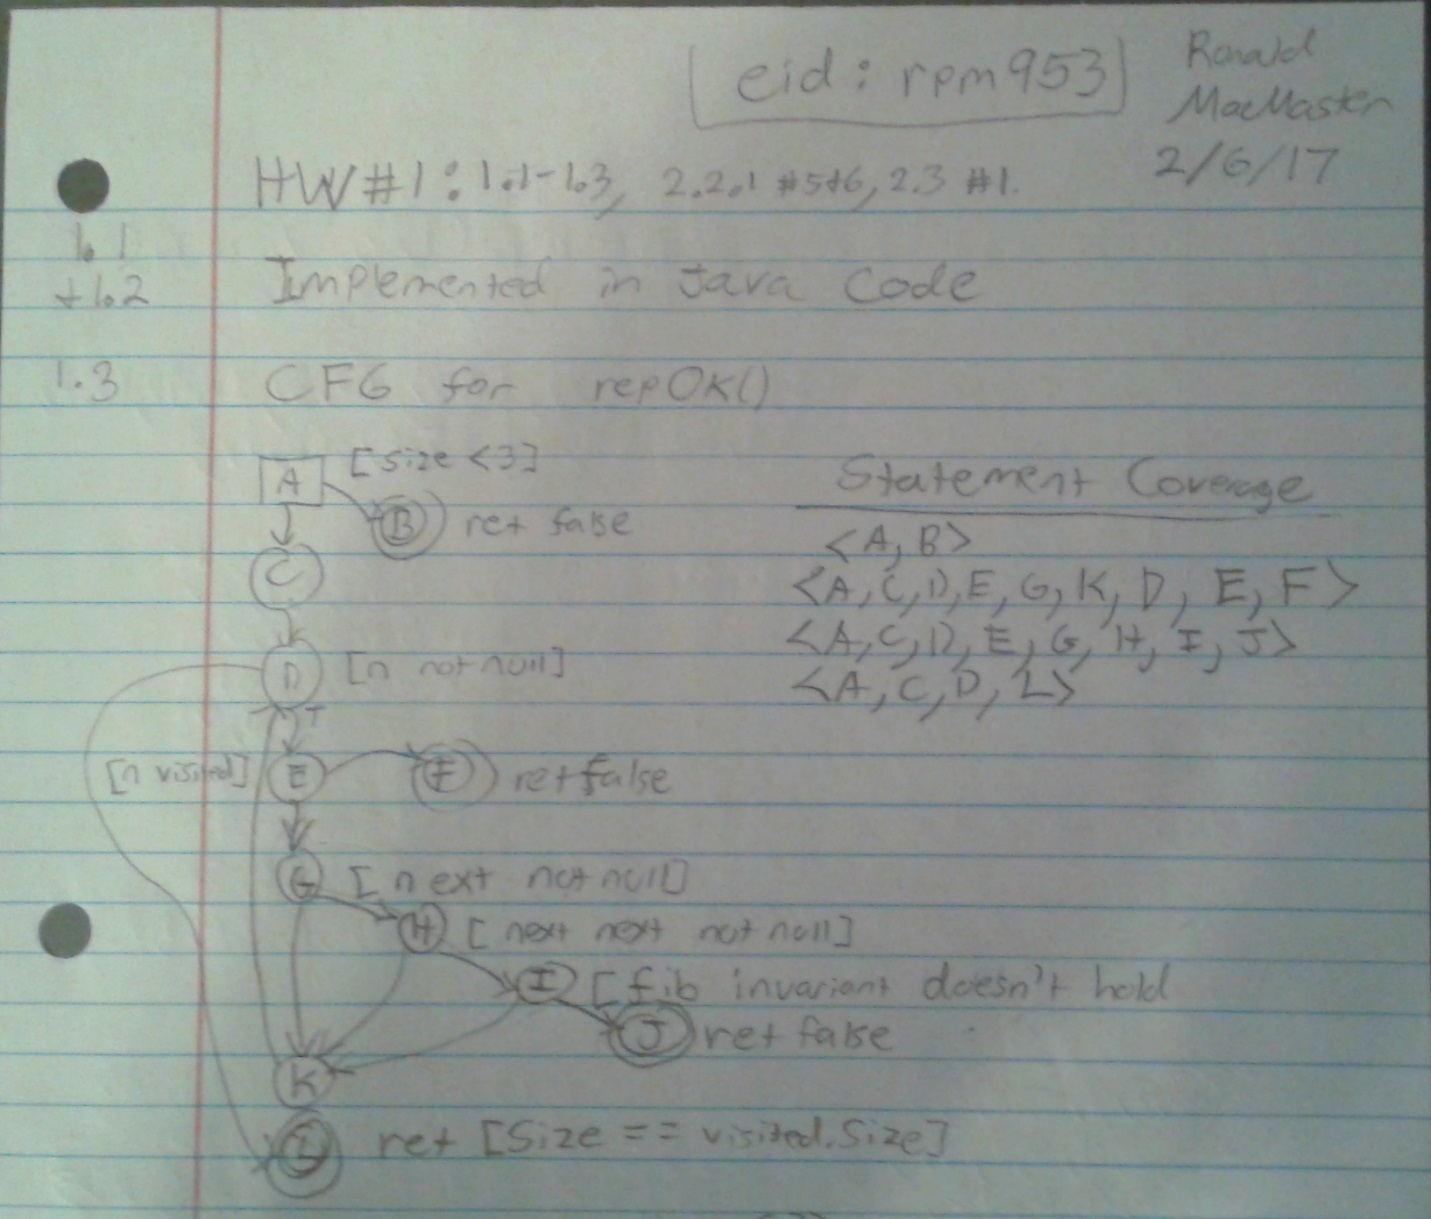 eid: rpm953
Ronald
MacMaster
2/6/17
HW#1: 1.1-1.3, 2.2.1 #5+6, 2.3 #1.
1.1
+1.2
Implemented in Java Code
1.3
CFG for repOK()
A
[size <3]
B
ret false
C
D
[n not null]
T
[n visited]
E
F
ret false
G
[next not null]
H
[next next not null]
I
[fib invariant doesn't hold
J
ret false
K
L
ret [Size == visited.Size]
Statement Coverage
<A, B>
<A, C, D, E, G, K, D, E, F>
<A, C, D, E, G, H, I, J>
<A, C, D, L>